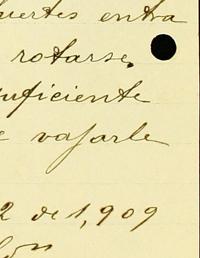 uertes entra
rotarse.
uficiente
e vasarle
2 de 1,909